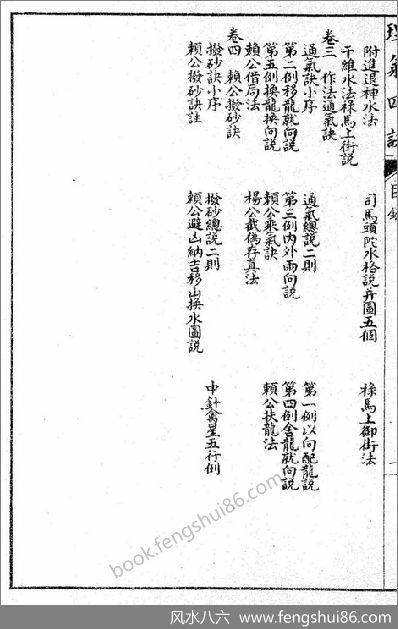 理氣四訣 目錄
附進退神水法 司馬頭陀水格說并圖五個 祿馬上御街法
干維水法祿馬上街說
卷三 作法通氣訣
通氣訣小序 通氣總說二則 第一例以向配龍說
第二例移龍就向說 第三例內外兩向說 第四例舍龍就向說
第五例換龍換向說 賴公乘氣訣 賴公扶龍法
賴公借局法 楊公截偽存真法
卷四 賴公撥砂訣
撥砂訣小序 撥砂總說二則 中針禽星五行例
賴公撥砂訣註 賴公避山納吉移山換水圖說
book.fengshui86.com
风水八六 www.fengshui86.com